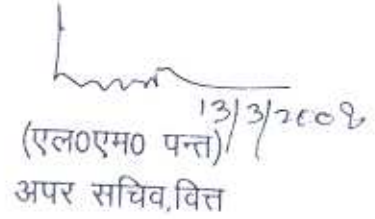 13/3/2009
(एल0एम0 पन्त)
अपर सचिव,वित्त